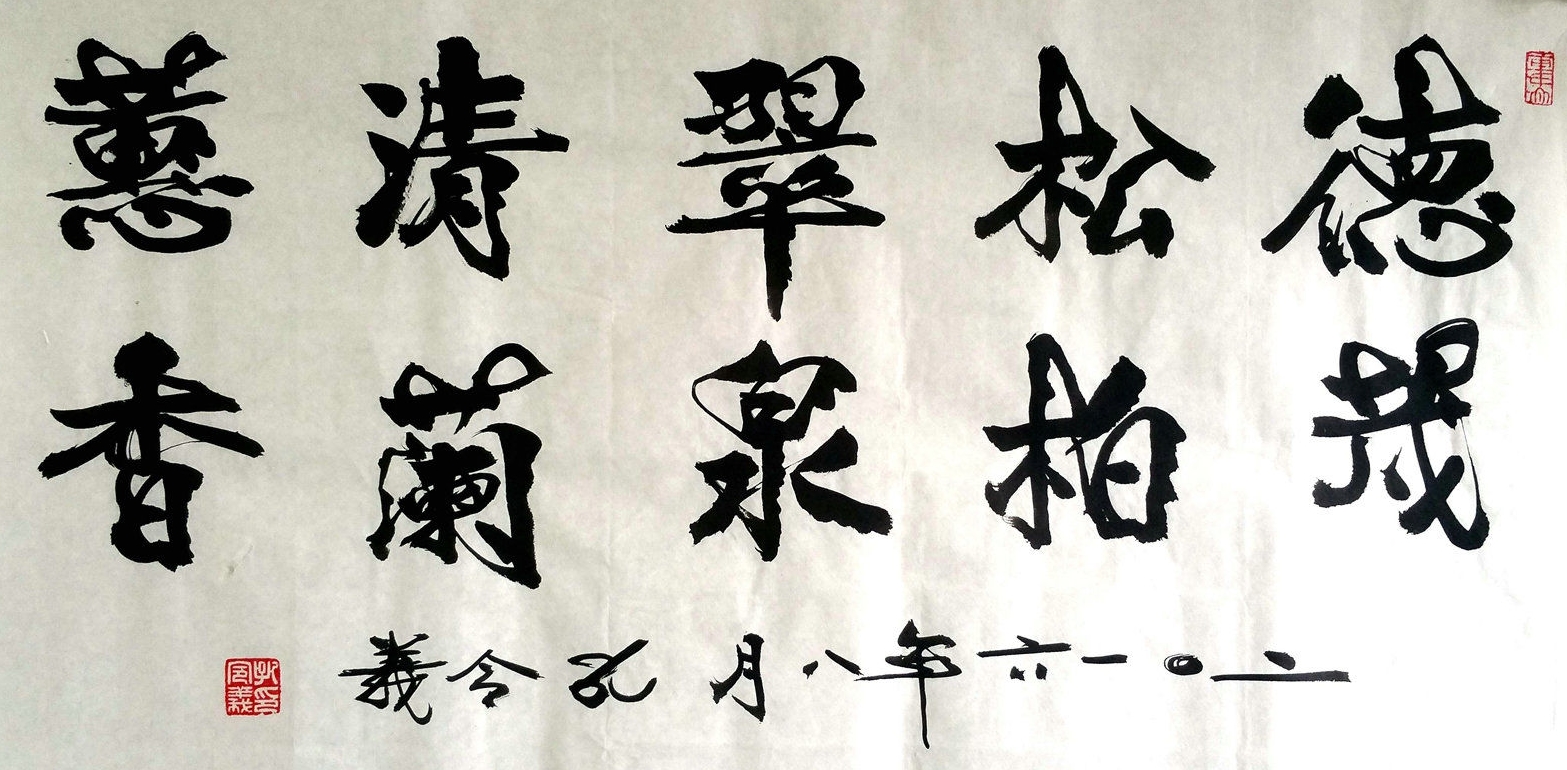 德茂
松柏
翠泉
清蘭
蕙香
二〇一六年八月 孔令義